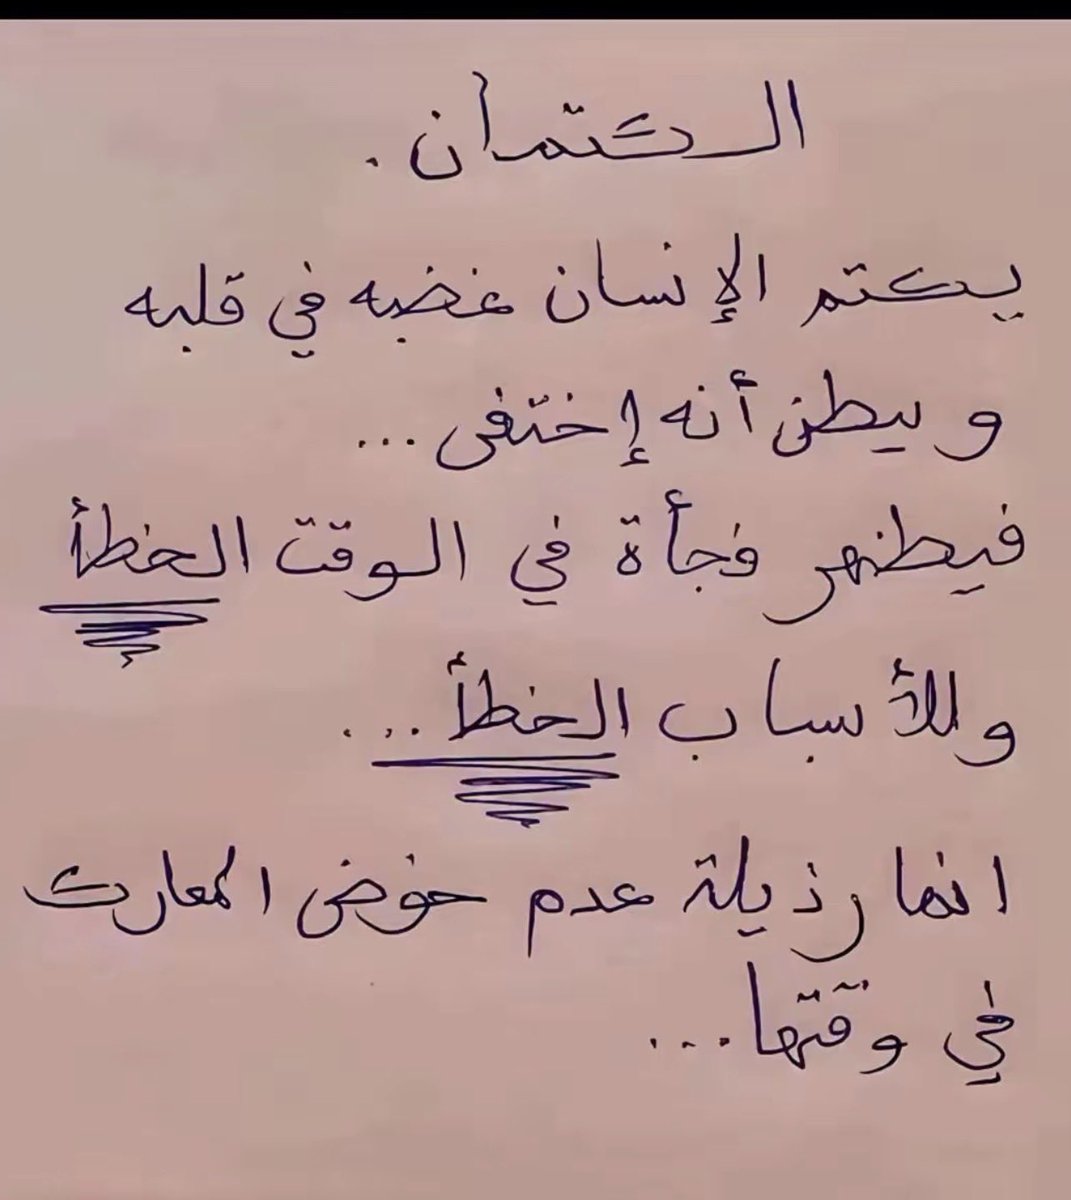 الكتمان .
يكتم الإنسان غضبه في قلبه
و يظن أنه إختفى ...
فيظهر فجأة في الوقت الخطأ
وللأسباب الخطأ ...
انها رذيلة عدم خوض المعارك
في وقتها ...